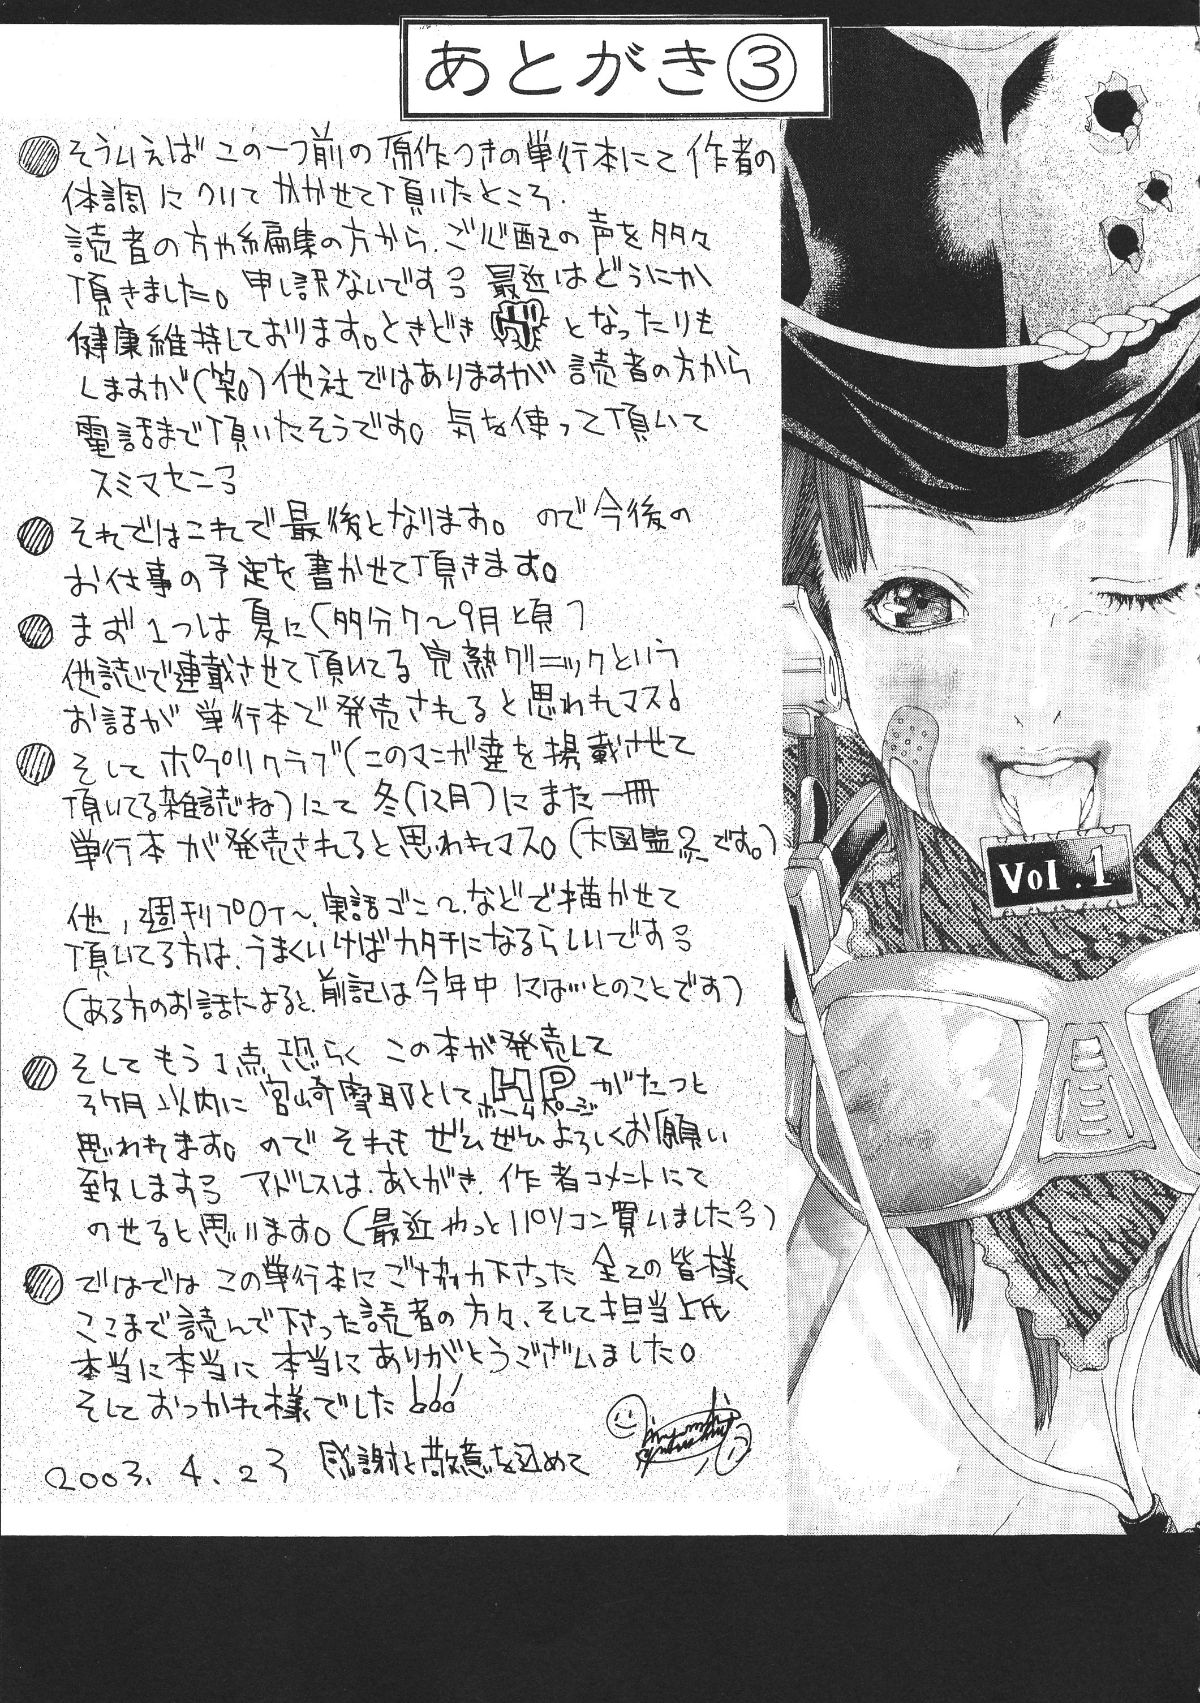 あとがき③
そういえば この一つ前の 原作つきの単行本にて 作者の
体調に ついて かかせて頂いたところ.
読者の方や編集の方から、ご心配の声を多々
頂きました。申し訳ないです 最近はどうにか
健康維持しております。ときどき となったりも
しますが(笑。)他社ではありますが 読者の方から
電話まで頂いたそうです。気を使って頂いて
スミマセン
それではこれで最後となります。ので今後の
お仕事の予定を書かせて頂きます。
まず1つは夏に(多分7〜9月頃
他誌で連載させて頂いてる 完熟クリニックという
お話が 単行本で発売されると思われマス
そして ポプリクラブ(このマンガ達を掲載させて
頂いてる雑誌ね)にて 冬(12月)に また一冊
単行本が発売されると思われマス。(大図鑑 です。)
他、週刊プロイ〜、実話ゴン〜、などで描かせて
頂いてる方は、うまくいけばカタチになるらしいです
(ある方のお話によると、前記は今年中には…とのことです)
そしてもう1点 恐らく この本が発売して
3ヶ月以内に 宮崎摩耶として HP がたつと
ホームページ
思われます。ので それも ぜひぜひよろしくお願い
致します アドレスは、あとがき、作者コメントにて
のせると思います。(最近やっとパソコン買いました)
ではでは この単行本にご協力下さった 全ての皆様、
ここまで読んで下さった読者の方々、そして担当上氏
本当に本当に 本当にありがとうございました。
そしておつかれ様でした!!!
2003.4.23 感謝と敬意を込めて
Vol.1